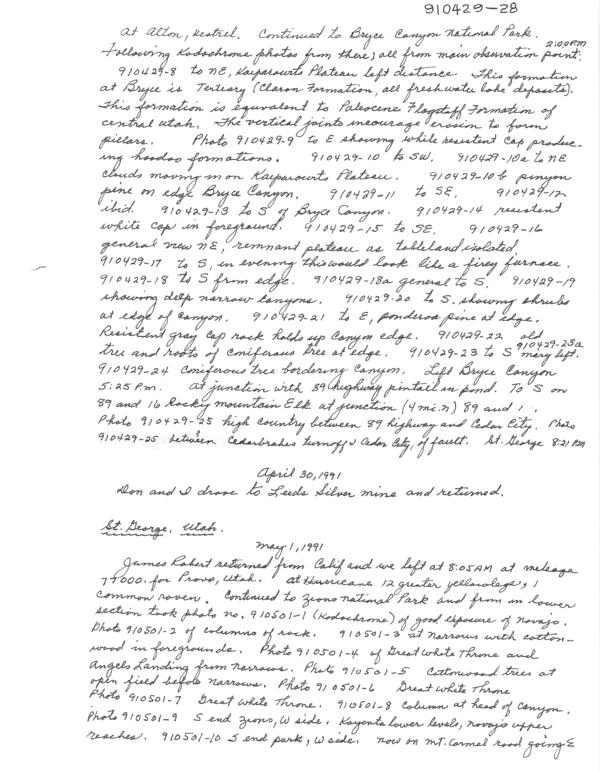 910429-28
At Alton, kestrel. Continued to Bryce Canyon National Park.
2:00 PM
Following Kodachrome photos from there; all from main observation point:
910429-8 to NE, Kaiparowits Plateau left distance. This formation
at Bryce is Tertiary (Claron Formation, all freshwater lake deposits).
This formation is equivalent to Paleocene Flagstaff Formation of
central Utah. The vertical joints incourage erosion to form
pillars. Photo 910429-9 to E showing while resistent cap produc-
ing hoodoo formations. 910429-10 to SW. 910429-10a to NE
clouds moving in on Kaiparowits Plateau. 910429-10b pinyon
pine on edge Bryce Canyon. 910429-11 to SE. 910429-12
ibid. 910429-13 to S of Bryce Canyon. 910429-14 resistent
white cap in foreground. 910429-15 to SE. 910429-16
general view NE, remnant plateau as tableland isolated,
910429-17 to S, in evening this would look like a firey furnace.
910429-18 to S from edge. 910429-18a general to S. 910429-19
showing deep narrow canyons. 910429-20 to S. showing shrubs
at edge of canyon. 910429-21 to E, ponderosa pine at edge.
Resistent gray cap rock holds up canyon edge. 910429-22 old
tree and roots of coniferous tree at edge. 910429-23 to S 910429-23a Mary left.
910429-24 coniferous tree bordering canyon. Left Bryce Canyon
5:25 P.m. At junction with 89 highway pintail in pond. To S on
89 and 16 Rocky mountain Elk at junction (4 mi. N) 89 and 1 .
Photo 910429-25 high country between 89 highway and Cedar City. Photo
910429-25 between Cedarbrakes turnoff & Cedar City, of fault. St. George 8:21 PM
April 30, 1991
Don and I drove to Leeds Silver mine and returned.
St. George, Utah.
May 1, 1991
James Robert returned from Calif and we left at 8:05 AM at mileage
77000. for Provo, Utah. At Hurricane 12 greater yellowlegs, 1
common raven. Continued to Zions National Park and from in lower
section took photo no. 910501-1 (Kodachrome) of good exposure of Navajo.
Photo 910501-2 of columns of rock. 910501-3 at Narrows with cotton-
wood in foregrounds. Photo 910501-4 of Great White Throne and
Angels Landing from Narrows. Photo 910501-5 Cottonwood trees at
open field before Narrows. Photo 910501-6 Great White Throne
Photo 910501-7 Great White Throne. 910501-8 Column at head of Canyon.
Photo 910501-9 S end Zions, W side. Kayenta lower levels, Navajo upper
reaches. 910501-10 S end park, W side. Now on Mt. Carmel road going E